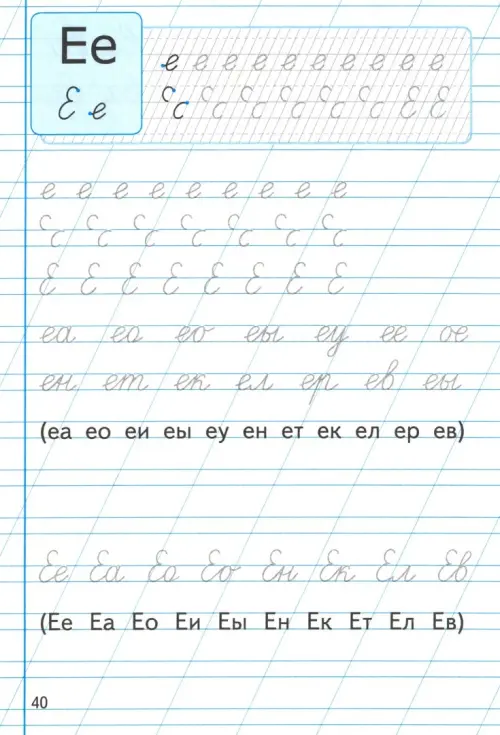 Ее
Е е
е е е е е е е е е е
Е Е
е е е е е е е е е
Е Е Е Е Е Е Е Е
еа ео ео еы еу ее ое
ен ет ек ел ер ев еы
(еа ео еи еы еу ен ет ек ел ер ев)
Ее Еа Ео Ео Ен Ек Ел Ев
(Ее Еа Ео Еи Еы Ен Ек Ет Ел Ев)
40